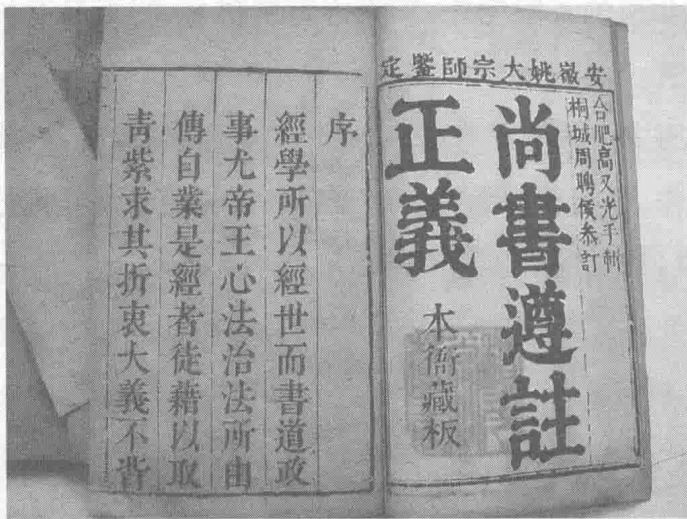 安徽姚大宗師鑒定
合肥高又光手輯
桐城周聘侯叅訂
尚書遵註
正義
本衙藏板
序
經學所以經世而書道政
事尤帝王心法治法所由
傳自業是經者徒藉以取
青紫求其折衷大義不背